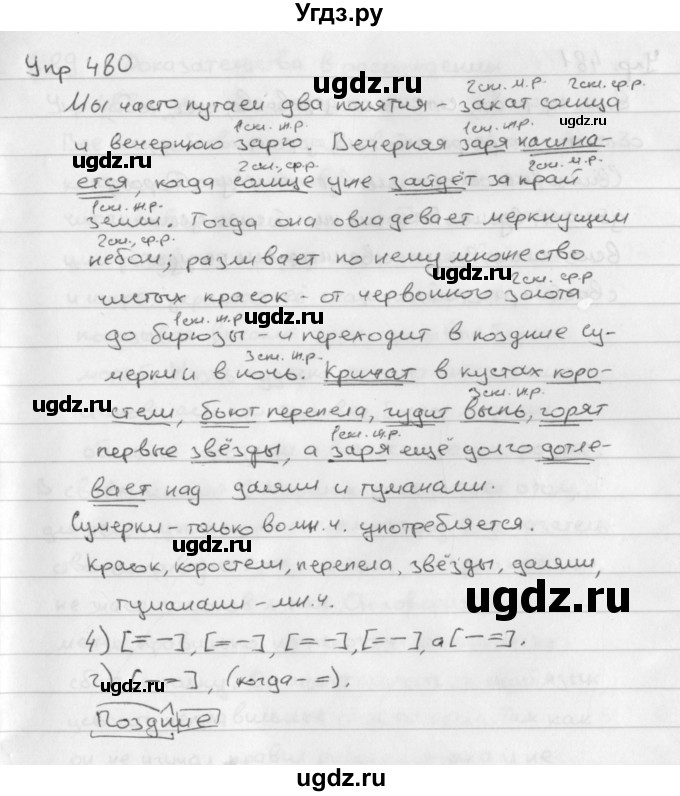 Угдз.ру
Упр 480
ugdz.ru
2 скл. м.р. 2 скл. ср.р.
Мы часто путаем два понятия - закат солнца
ugdz.ru
1 скл. ж.р. 1 скл. ж.р.
и вечернюю зарю. Вечерняя заря начина-
ugdz.ru
2 скл., ср.р. 2 скл. м.р.
ется, когда солнце уже зайдёт за край
1 скл. ж.р.
земли. Тогда она овладевает меркнущим
2 скл., ср.р.
небом, разливает по нему множество
ugdz.ru
2 скл. ср.р.
чистых красок - от червонного золота
1 скл. ж.р. ugdz.ru
до бирюзы - и переходит в поздние су-
3 скл. ж.р.
мерки и в ночь. Кричат в кустах коро-
ugdz.ru
3 скл. ж.р.
стели, бьют перепела, гудит выпь, горят
ugdz.ru
1 скл. ж.р.
первые звёзды, а заря ещё долго дотле-
вает над далями и туманами.
Сумерки - только во мн.ч. употребляется.
ugdz.ru
Красок, коростели, перепела, звёзды, далями,
ugdz.ru
туманами - мн.ч.
4) [= -], [= -], [= -], [= -], а [- =].
2) [- =], (когда - =).
ugdz.ru
Поздние
ugdz.ru
ugdz.ru